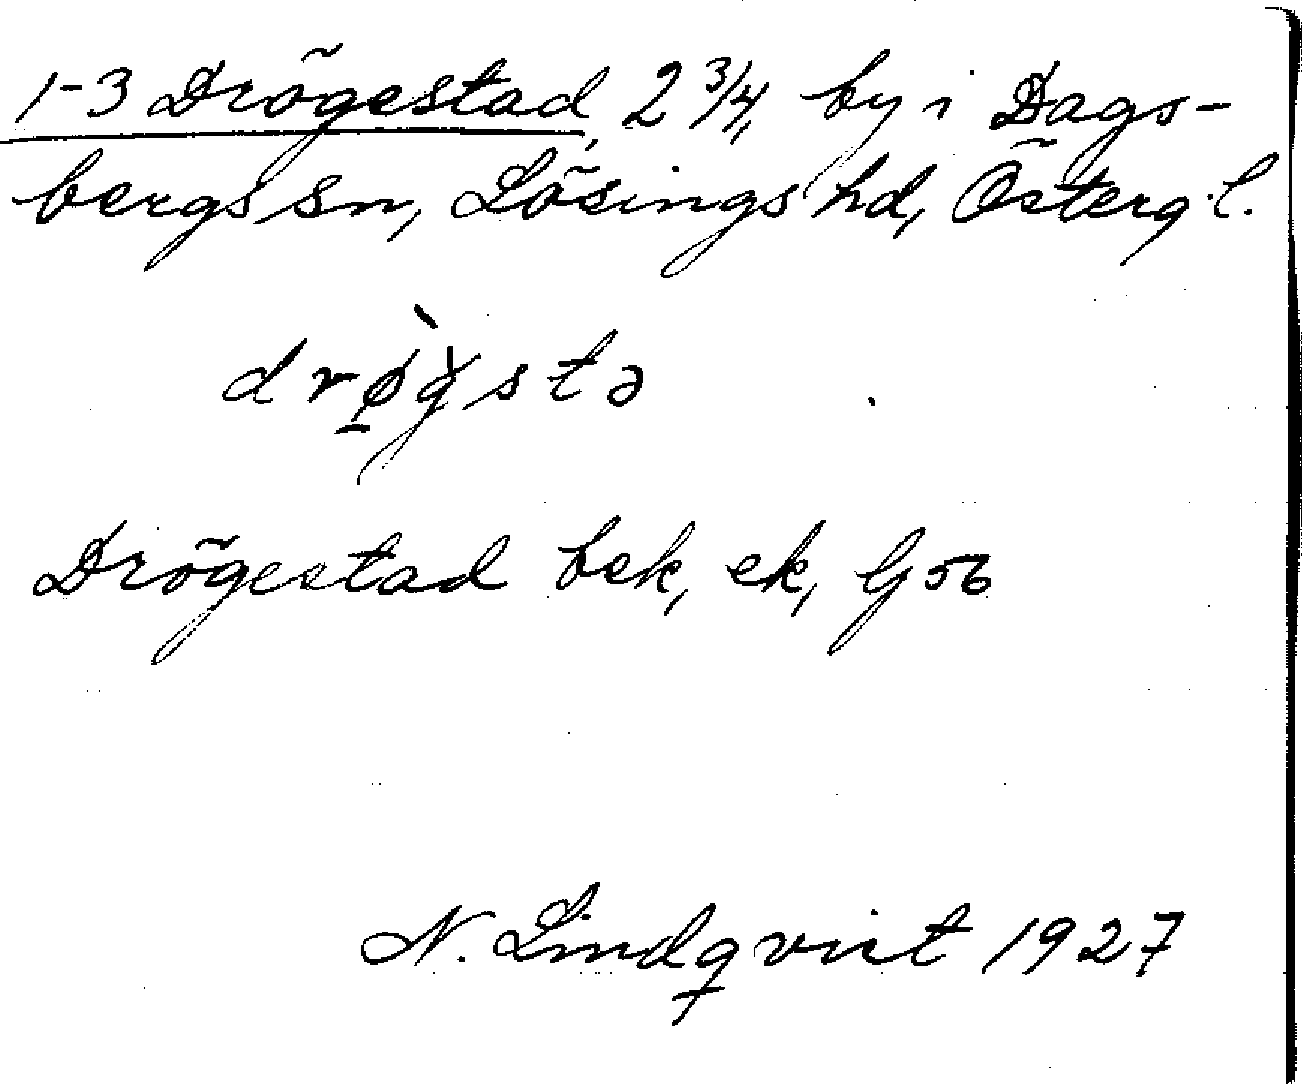 1-3 Drögestad, 2 3/4, by i Dags-
bergs sn, Lösings hd, Östergl.
drø̱̀gstə
Drögestad bek, ek,
N. Lindqvist 1927